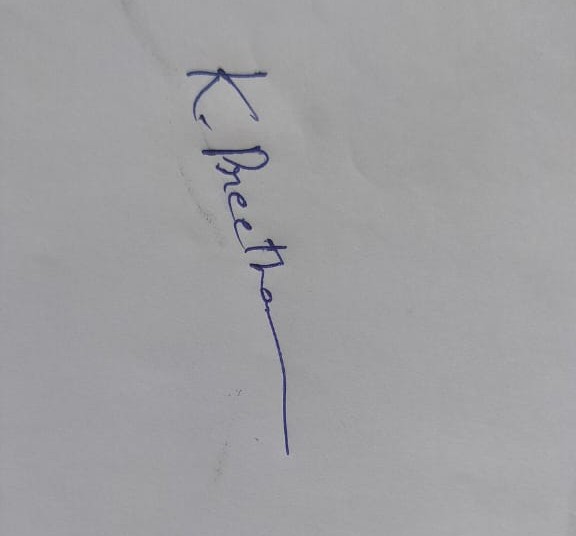 K. Preetha